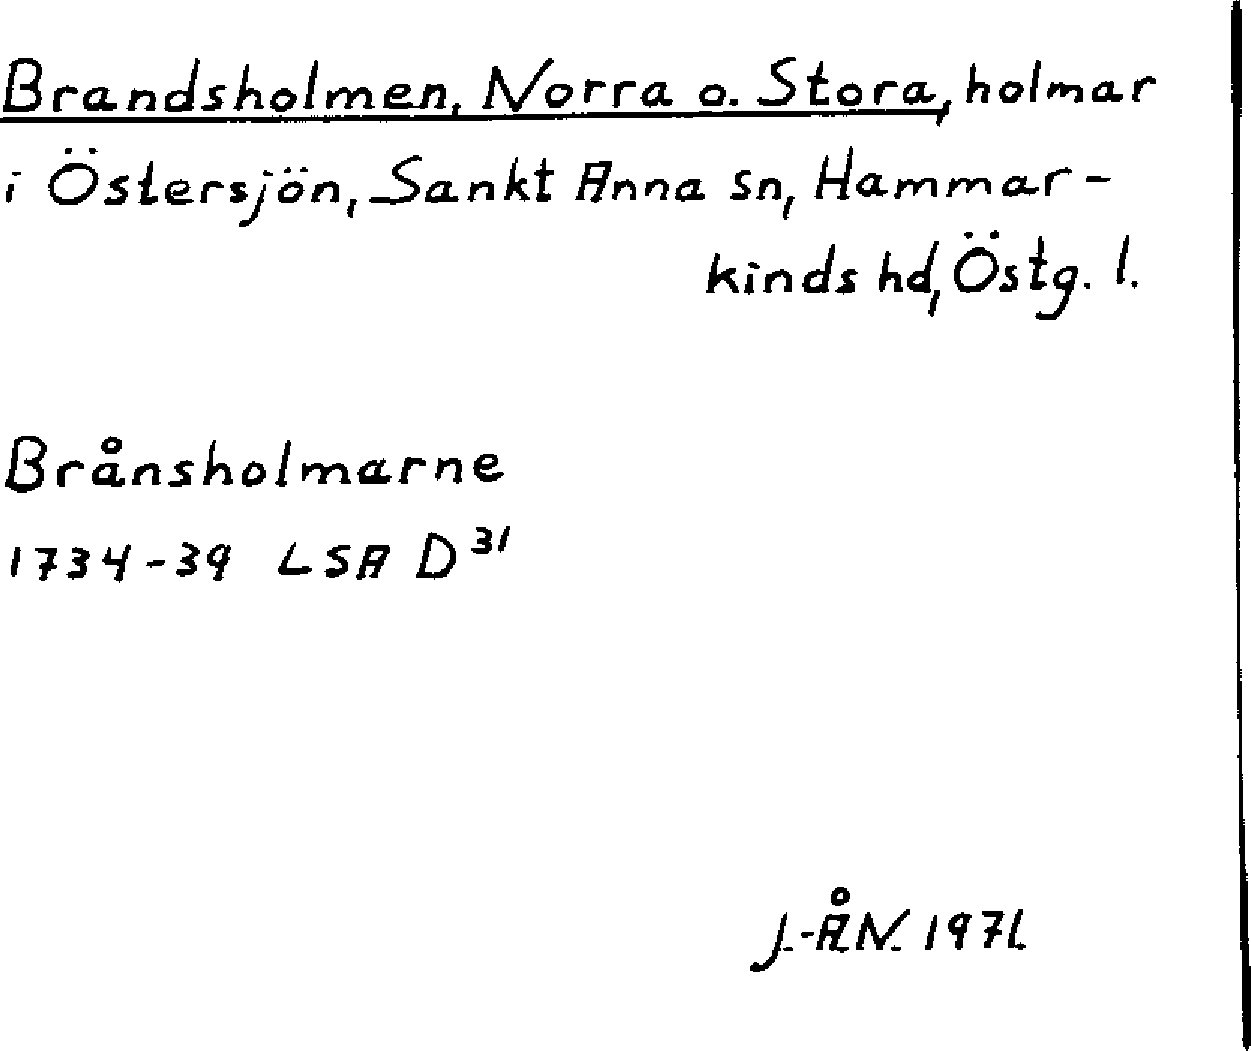 Brandsholmen, Norra o. Stora, holmar
i Östersjön, Sankt Anna sn, Hammar-
kinds hd, Östg. l.
Brånsholmarne
1734-39 LSA D 31
J.-Å.N. 1971.